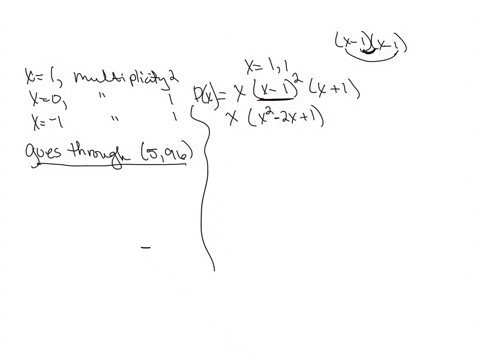 (x-1)(x-1)
x=1, multiplicity 2
x=0, " 1
x=-1 " 1
goes through (5,96)
x=1,1
P(x)= x (x-1)² (x+1)
x (x²-2x+1)
-